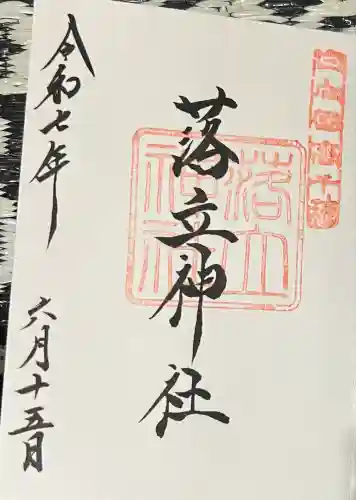 落立
神社
落立神社
令和七年
六月十五日